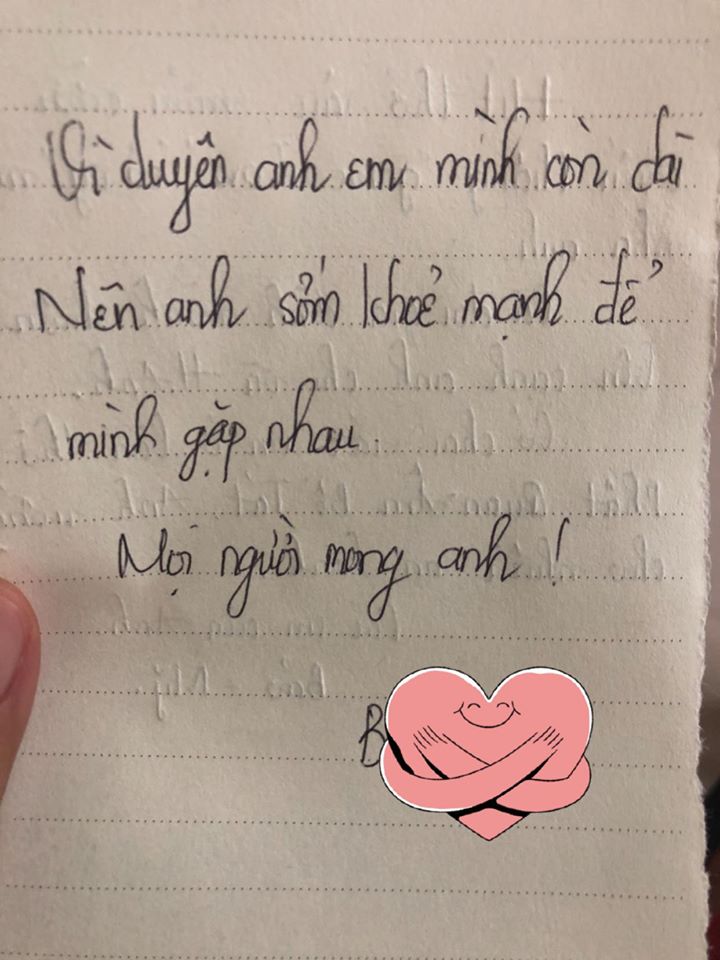 Vì duyên anh em mình còn dài
Nên anh sớm khoẻ mạnh để
mình gặp nhau.
Mọi người mong anh!
B